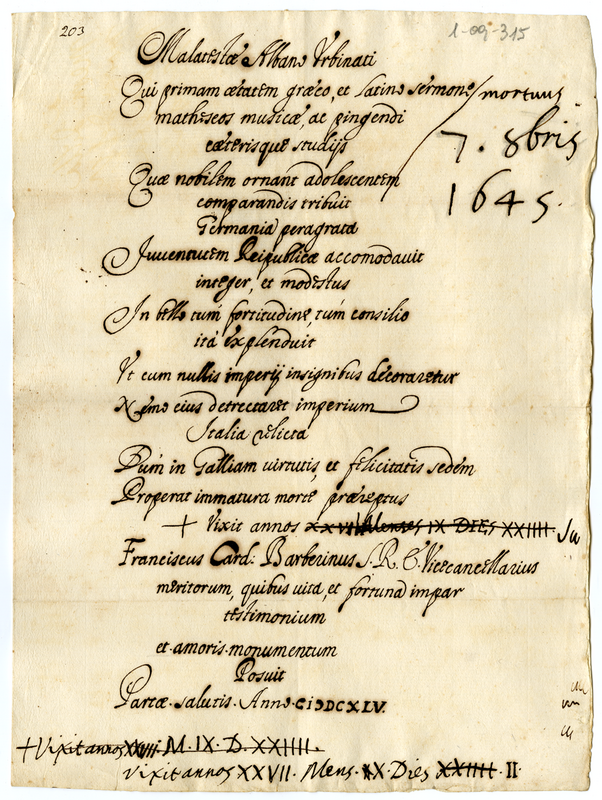 203
1-09-315
Malatestæ Albano Urbinati
Qui primam ætatem græco, et latino sermone / mortuus
matheseos musicæ, ac pingendi
7. 8bris
cæterisque studijs
Quæ nobilem ornant adolescentem
1645.
comparandis tribuit
Germania peragrata
Juventutem Reipublicæ accomodavit
integer, et modestus
In bello tum fortitudine, tum consilio
ita explenduit
Ut cum nullis imperij insignibus decoraretur
Nemo eius detrectaret imperium
Italia relicta
Dum in Galliam virtutis, et felicitatis sedem
Properat immatura morte præreptus
+ Vixit annos XXVII Menses IX DIES XXIIII.
Franciscus Card: Barberinus S. R. E. Vicecancellarius
meritorum, quibus vita, et fortuna impar
testimonium
et amoris monumentum
Posuit
Partæ salutis Anno CIↃDCXLV.
+ Vixit annos XXVII. M. IX. D. XXIIII.
vixit annos XXVII. Mens. IX. Dies XXIIII. II.